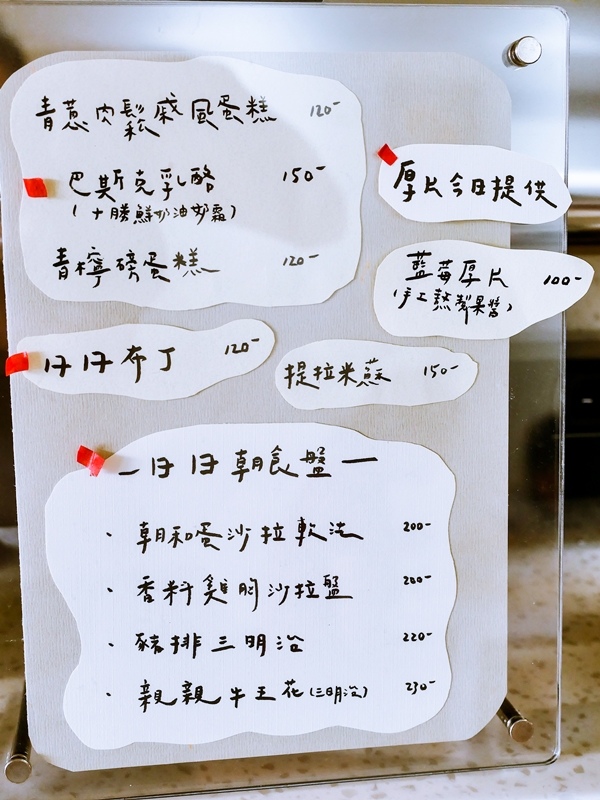 青蔥肉鬆戚風蛋糕 120-
巴斯克乳酪 150-
(十勝鮮奶油奶霜)
青檸磅蛋糕 120-
厚片今日提供
藍莓厚片 100-
(手工熬製果醬)
日日布丁 120-
提拉米蘇 150-
一日日朝食盤一
· 朝和蛋沙拉軟法 200-
· 香料雞胸沙拉盤 200-
· 豬排三明治 220-
· 親親牛五花(三明治) 230-